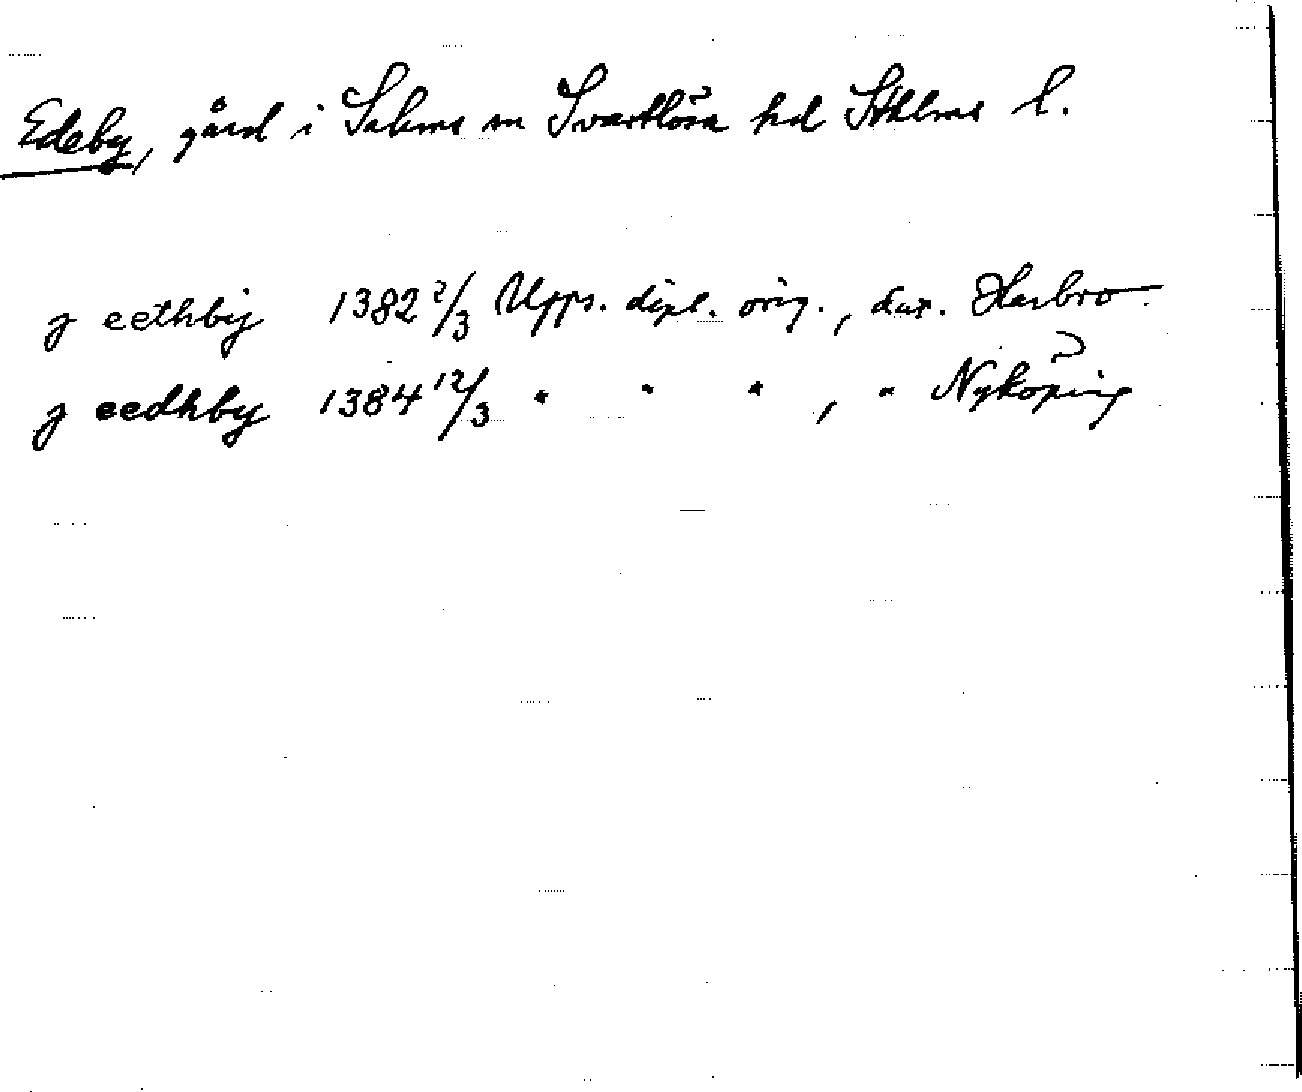 Edeby, gård i Salems sn Svartlösa hd Sthlms l.
j eethby 1382 2/3 Upps. dipl. orig., dat. Harbro
j eedhby 1384 12/3 " " ", " Nyköping